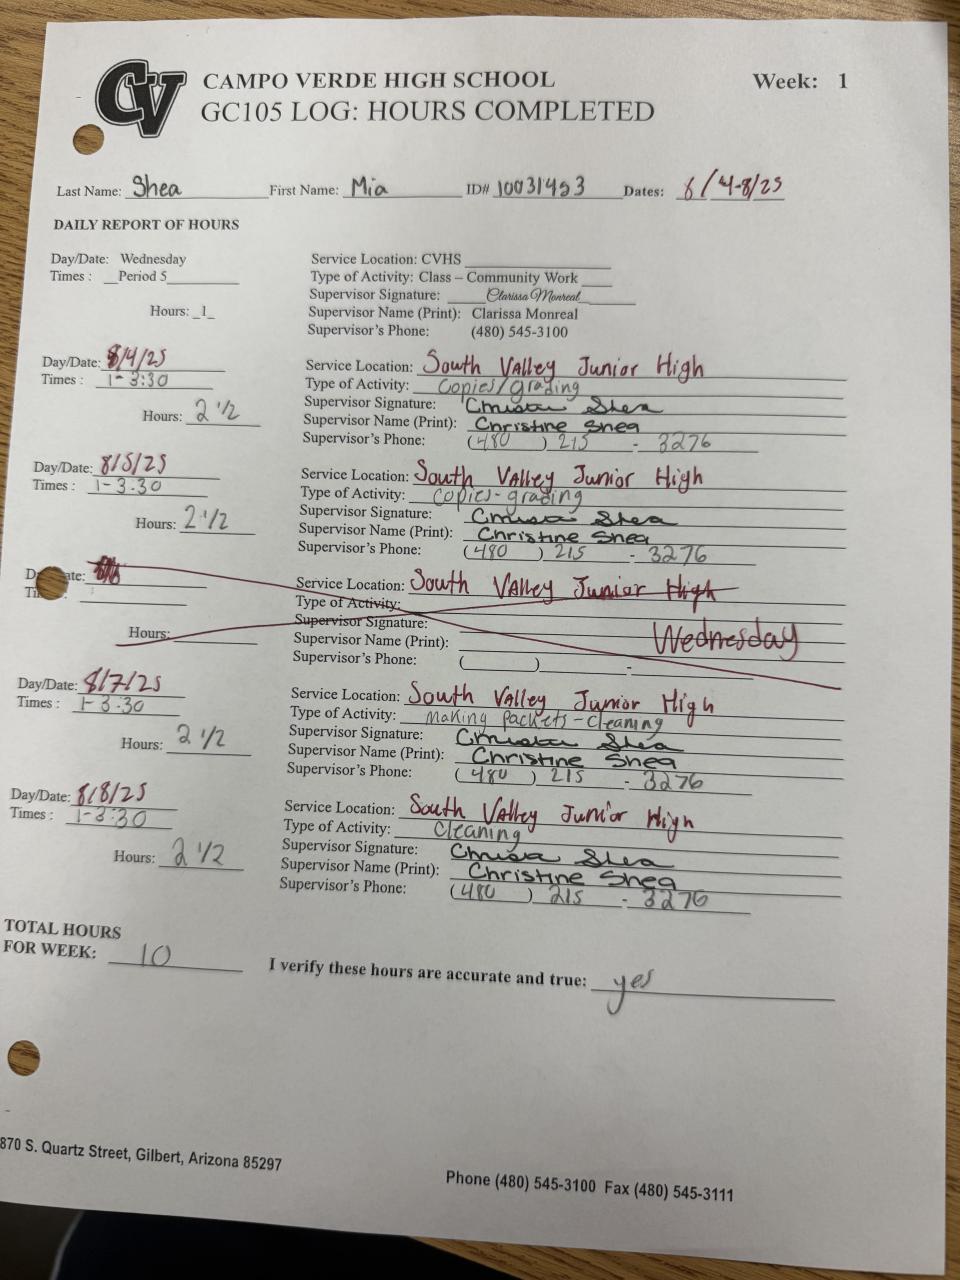 CV CAMPO VERDE HIGH SCHOOL Week: 1
GC105 LOG: HOURS COMPLETED
Last Name: Shea First Name: Mia ID# 10031453 Dates: 8/4-8/25
DAILY REPORT OF HOURS
Day/Date: Wednesday Service Location: CVHS
Times : Period 5 Type of Activity: Class – Community Work
Supervisor Signature: Clarissa Monreal
Hours: 1 Supervisor Name (Print): Clarissa Monreal
Supervisor's Phone: (480) 545-3100
Day/Date: 8/4/25 Service Location: South Valley Junior High
Times : 1-3:30 Type of Activity: copies/grading
Supervisor Signature: Christine Shea
Hours: 2 1/2 Supervisor Name (Print): Christine Shea
Supervisor's Phone: (480) 215 - 3276
Day/Date: 8/5/25 Service Location: South Valley Junior High
Times : 1-3:30 Type of Activity: copies-grading
Supervisor Signature: Christine Shea
Hours: 2 1/2 Supervisor Name (Print): Christine Shea
Supervisor's Phone: (480) 215 - 3276
Service Location: South Valley Junior High
Type of Activity:
Supervisor Signature:
Hours: Supervisor Name (Print): Wednesday
Supervisor's Phone: ( ) -
Day/Date: 8/7/25 Service Location: South Valley Junior High
Times : 1-3:30 Type of Activity: Making packets-cleaning
Supervisor Signature: Christine Shea
Hours: 2 1/2 Supervisor Name (Print): Christine Shea
Supervisor's Phone: (480) 215 - 3276
Day/Date: 8/8/25 Service Location: South Valley Junior High
Times : 1-3:30 Type of Activity: Cleaning
Supervisor Signature: Christine Shea
Hours: 2 1/2 Supervisor Name (Print): Christine Shea
Supervisor's Phone: (480) 215 - 3276
TOTAL HOURS
FOR WEEK: 10 I verify these hours are accurate and true: yes
870 S. Quartz Street, Gilbert, Arizona 85297
Phone (480) 545-3100 Fax (480) 545-3111